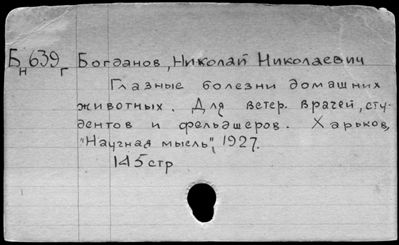 Бн639г Богданов, Николай Николаевич
Глазные болезни домашних
животных. Для ветер. врачей, сту-
дентов и фельдшеров. Харьков,
"Научная мысль", 1927.
145 стр